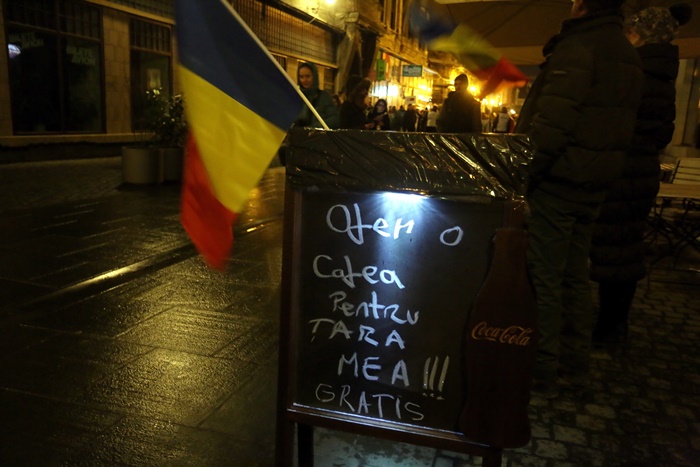 Ofer o
Cafea
Pentru
TARA
MEA !!!
GRATIS
Coca-Cola